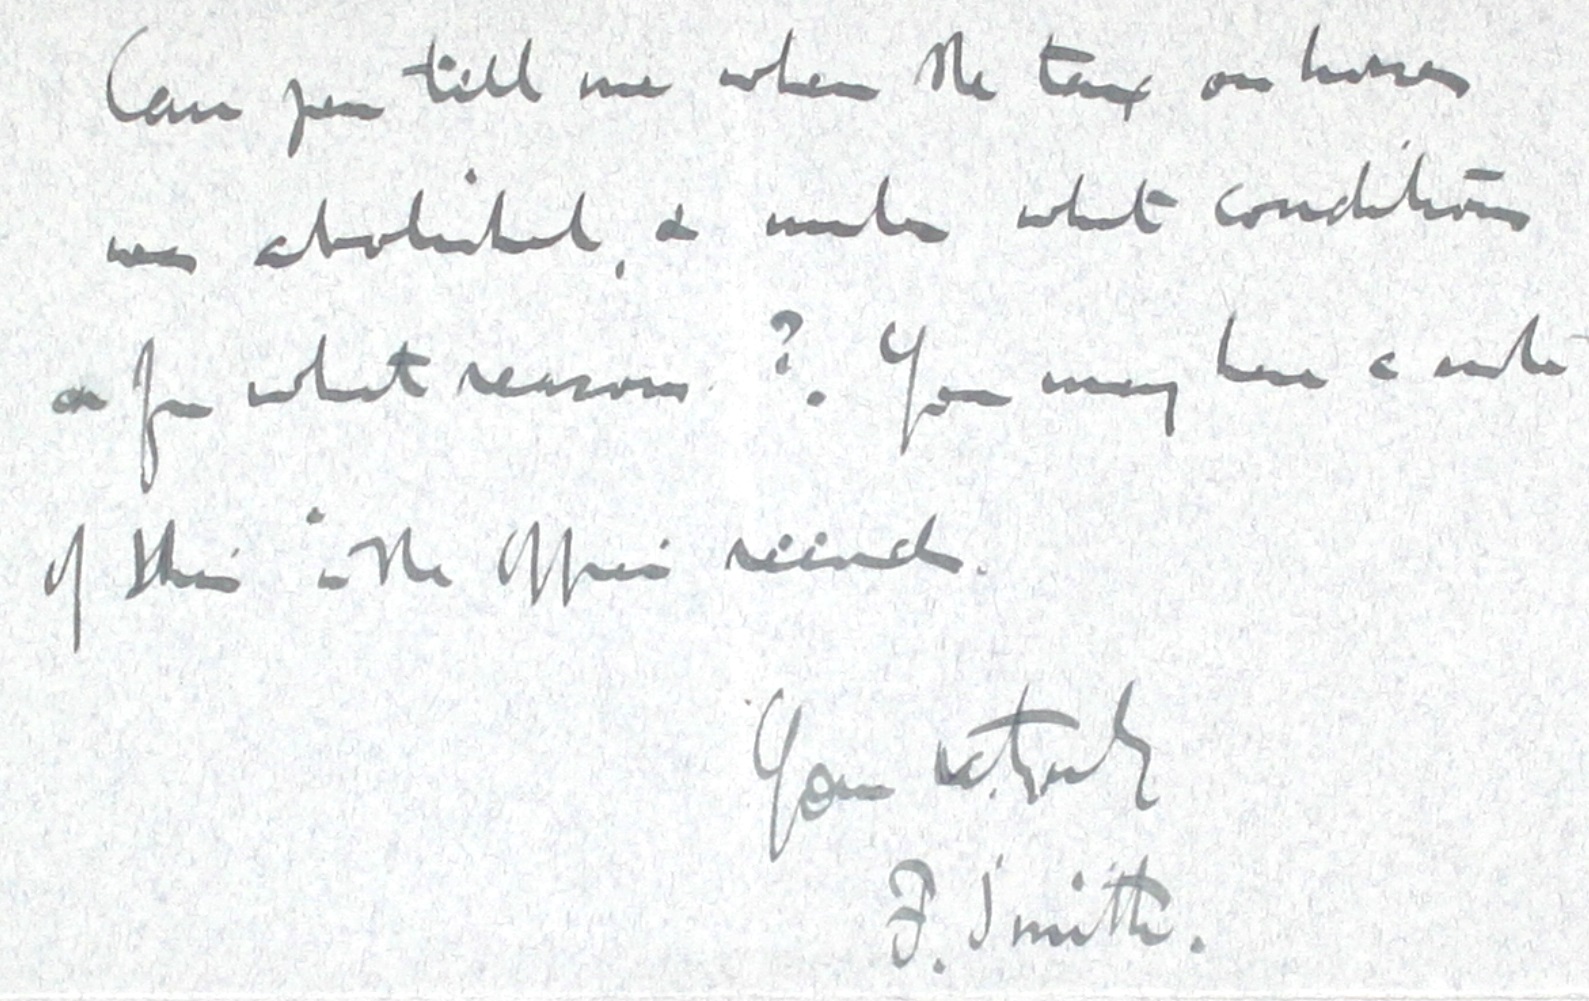 Can you tell me when the tax on horses
was abolished, & under what conditions
or for what reasons ?. You may have a note
of this in the Office records.
Yours v. truly
F. Smith.